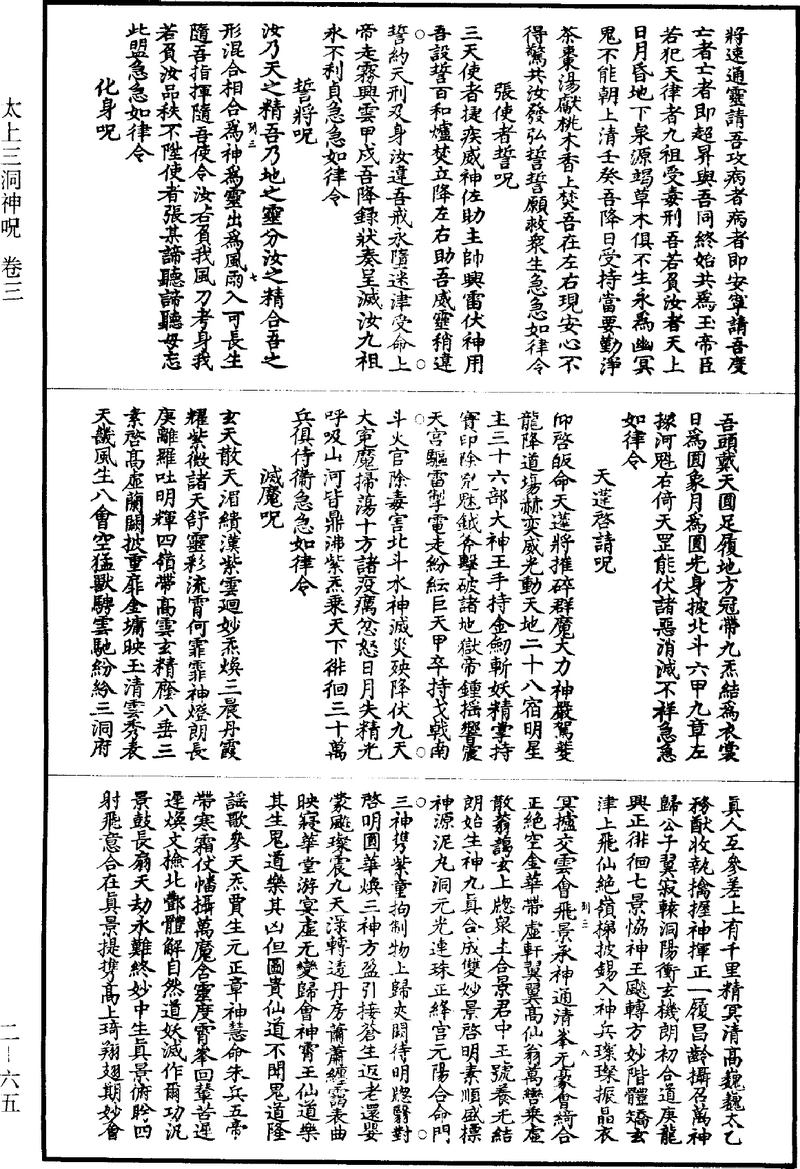 太上三洞神呪 卷三
二—六五
將速通靈請吾攻病者病者即安寧請吾度
亡者亡者即超昇與吾同終始共為玉帝臣
若犯天律者九祖受毒刑吾若負汝者天上
日月昏地下泉源竭草木俱不生永為幽冥
鬼不能朝上清壬癸吾降日受持當要勤淨
茶棗湯獻桃木香上焚吾在左右現安心不
得驚共汝發弘誓誓願救衆生急急如律令
張使者誓呪
三天使者捷疾威神佐助主帥興雷伏神用
吾設誓百和爐焚立降左右助吾威靈稍違
誓約天刑及身汝違吾戒永墮迷津受命上
帝走霧興雲甲戌吾降錄狀奏呈滅汝九祖
永不利貞急急如律令
誓將呪
汝乃天之精吾乃地之靈分汝之精合吾之
形混合相合為神為靈出為風雨入可長生
隨吾指揮隨吾使令汝若負我風刀考身我
若負汝品秩不陞使者張某諦聽諦聽毋忘
此盟急急如律令
化身呪
吾頭戴天圓足履地方冠帶九炁結為衣裳
日為圓象月為圓光身披北斗六甲九章左
據河魁右倚天罡能伏諸惡消滅不祥急急
如律令
天蓬啓請呪
仰啓皈命天蓬將摧碎群魔大力神嚴駕蒼
龍降道場赫奕威光動天地二十八宿明星
主三十六部大神王手持金劒斬妖精掌持
寶印除兇魅鉞斧擊破諸地獄帝鍾搖響震
天宮驅雷掣電走紛紜巨天甲卒持戈戟南
斗火官除毒害北斗水神滅災殃降伏九天
大魔掃蕩十方諸疫癘忿怒日月失精光
呼吸山河皆鼎沸紫炁乘天下徘徊三十萬
兵俱侍衞急急如律令
滅魔呪
玄天散天湄繢漢紫雲迴妙炁煥三晨丹霞
耀紫微諸天舒靈彩流霄何霏霏神燈朗長
庚離羅吐明輝四嶺帶高雲玄精塵八垂三
素啓高虛蘭闕披重扉金墉映玉清雲秀表
天畿風生八會空猛獸騁雲馳紛紛三洞府
眞人互參差上有千里精冥清高巍巍太乙
務猷收執擒握神揮正一履昌齡攝召萬神
歸公子翼寂轅洞陽衡玄機朗初合道庚龍
興正徘徊七景恊神王飈轉方妙階體矯玄
津上飛仙絶嶺梯披錫入神兵璨璨振晶衣
冥爐交雲會飛景承神通清峯无豪會綺合
正絶空金華帶虛軒翼翼高仙翁萬轡乗虛
散蓊藹玄上牕泉主合景君中王號養无結
朗始生神九眞合成雙妙景啓明素順盛標
神源泥丸洞元光連珠正絳宮元陽合命門
三神携紫童拘制物上歸夾闘待明牕翳對
啓明圓華煥三神方盈引接蒼生返老還嬰
蒙飈璨震九天渌轉逵丹房蕭蕭纏靄表曲
映寢華堂游宴虛无變歸會神霄王仙道樂
其生鬼道樂其凶但圖貴仙道不聞鬼道隆
謡歌參天炁賈生元正章神慧命朱兵五帝
帶寒霜仗幡攝萬魔舍靈度霄峯回輦苦遲
遲煥文檢北酆體解自然道妖滅作爾功汎
景鼓長扇天劫永難終妙中生眞景俯盻四
射飛意合在眞景提携高上琦翔翅期妙會
列三
七
列三
八